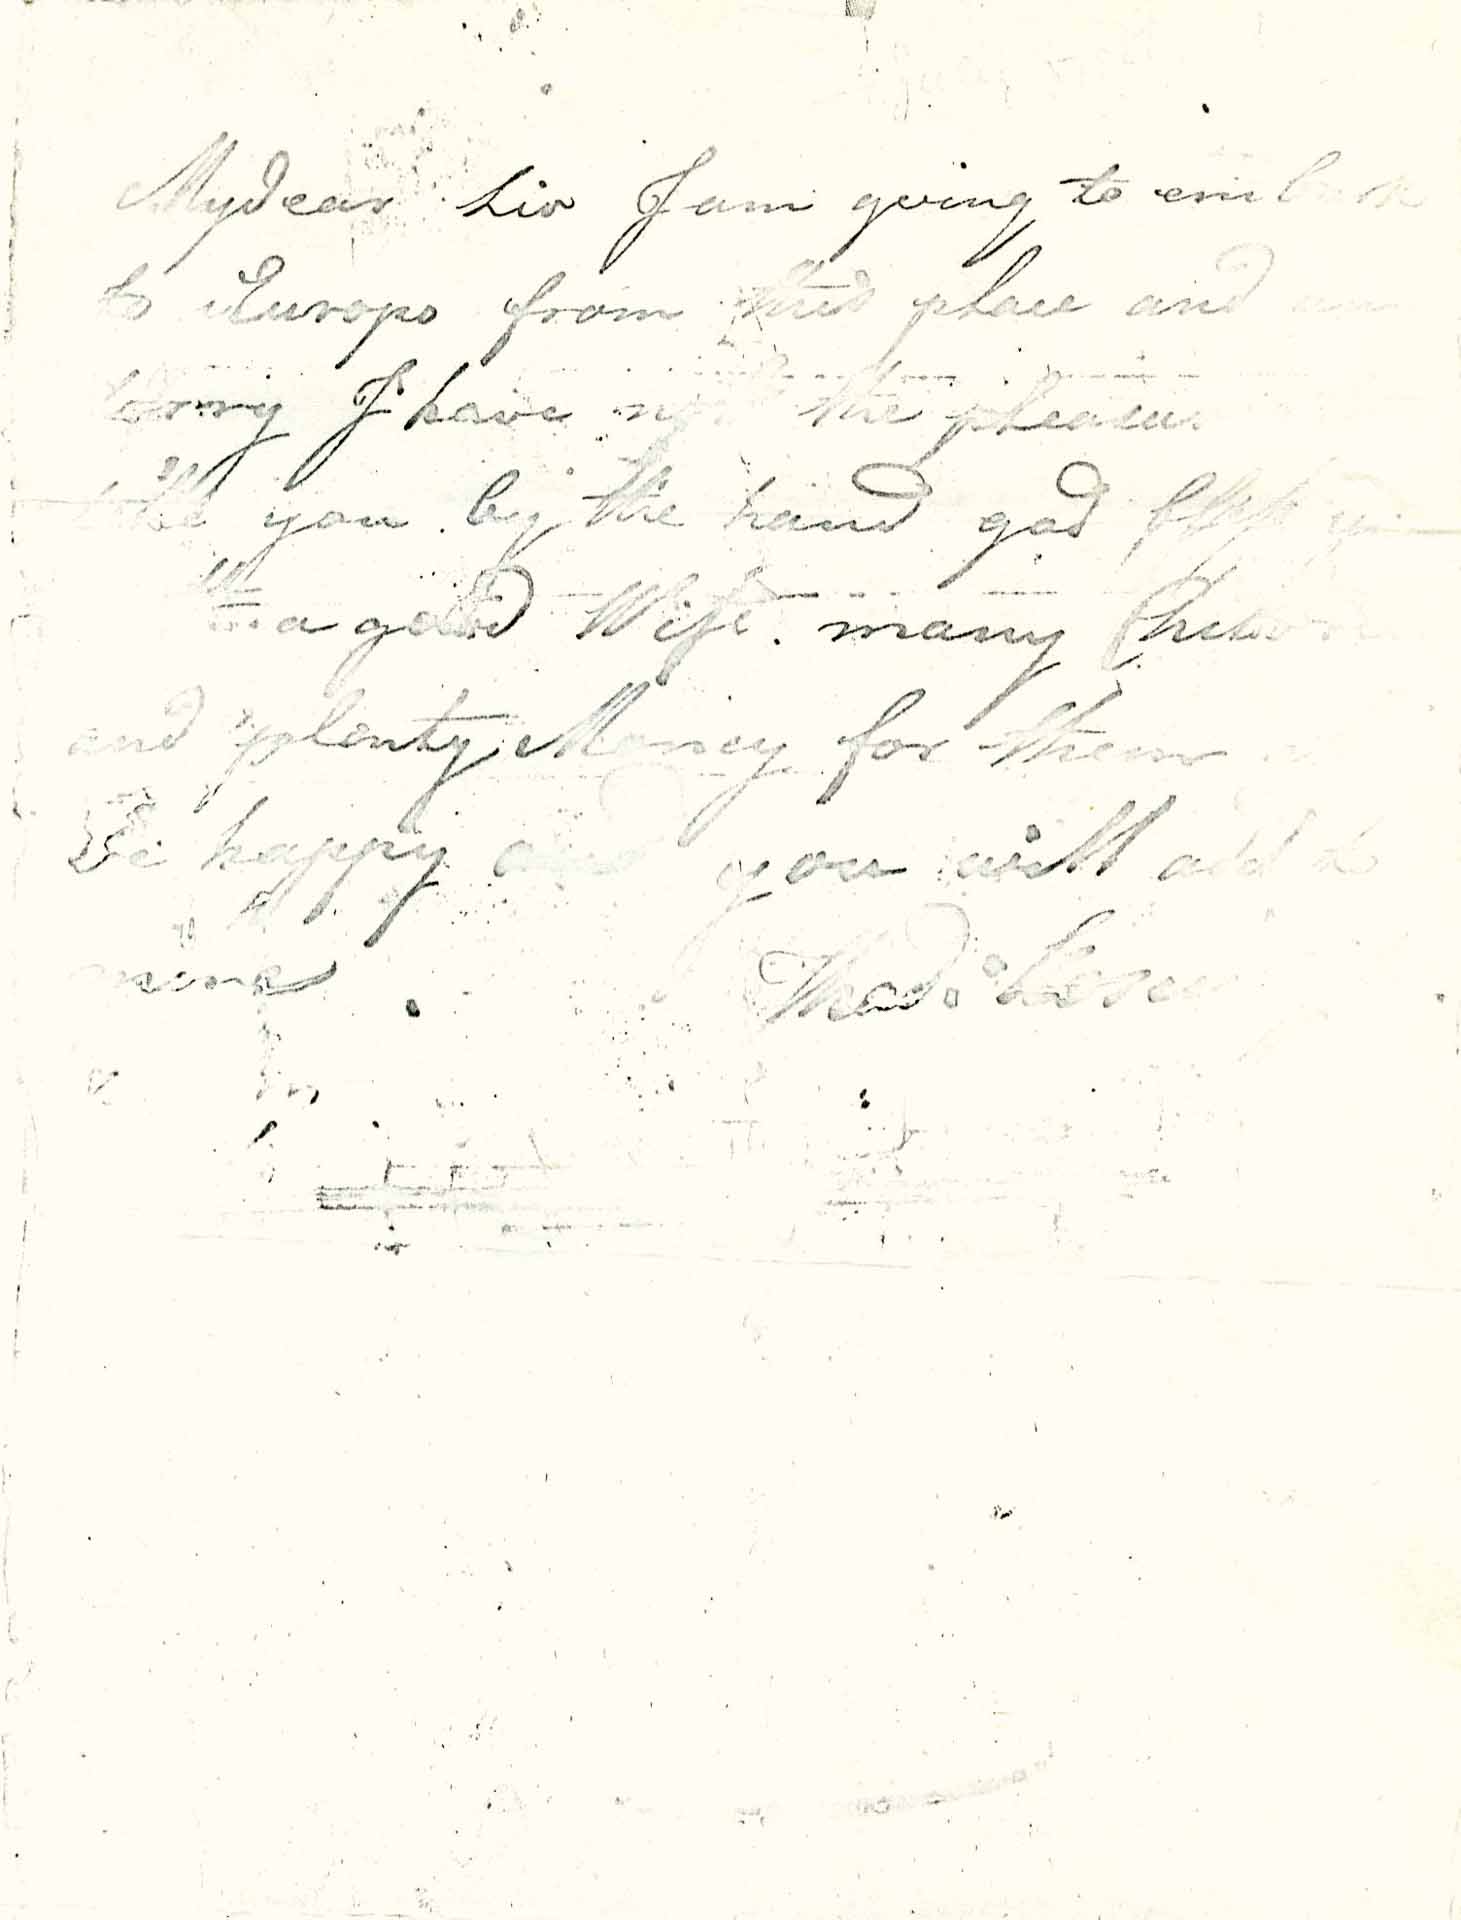 My dear Sir I am going to embark
to Europe from this place and am
sorry I have not the pleasure
take you by the hand god bless you
a good Wife. many Children
and plenty Money for them
be happy and you will add to
mine
Thad: